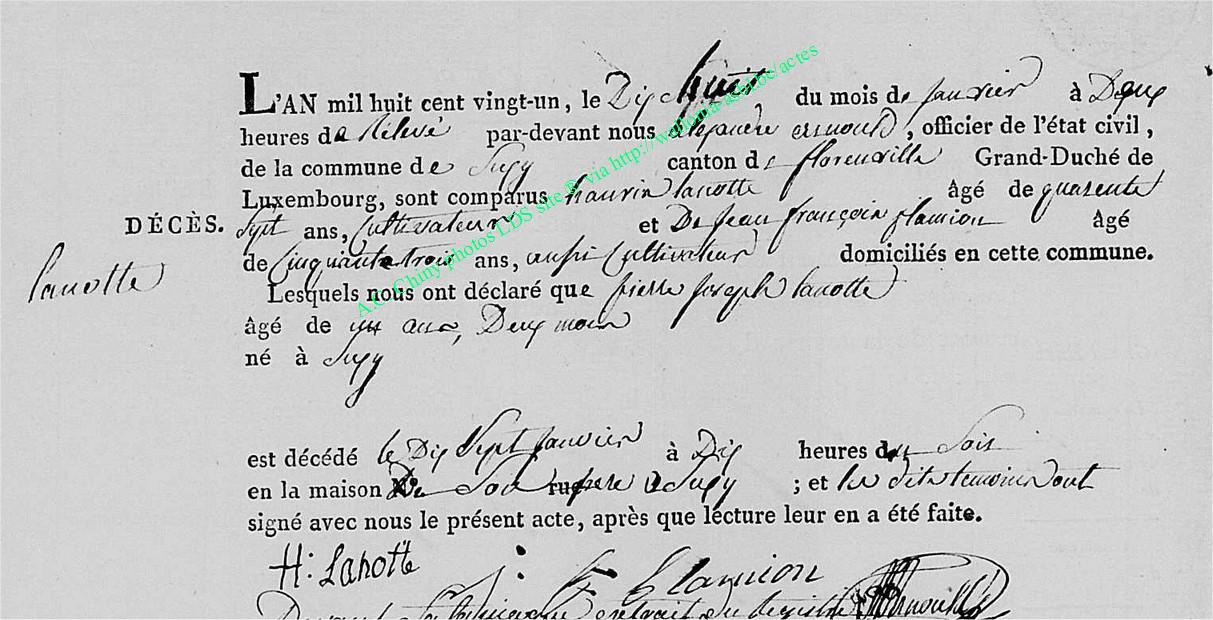 L'AN mil huit cent vingt-un, le Dix huit du mois de janvier à Deux
heures de Rélevé par-devant nous alexandre arnould, officier de l'état civil,
de la commune de Sugy canton de florenville Grand-Duché de
Luxembourg, sont comparus hauvin lanotte âgé de quarente
DÉCÈS. Sept ans, Cultivateur et De jean françois flamion âgé
lanotte
de Cinquante trois ans, aussi Cultivateur domiciliés en cette commune.
Lesquels nous ont déclaré que pierre joseph lanotte
âgé de un ans, Deux mois
né à Sugy
est décédé le Dix Sept janvier à Dix heures du Soir
en la maison De Son pere a Sugy ; et les dits temoins ont
signé avec nous le présent acte, après que lecture leur en a été faite.
H: Lanotte
flamion
extrait du registre
A.C. Chiny photos LDS site ® via http://wallonia-asbl.be/actes